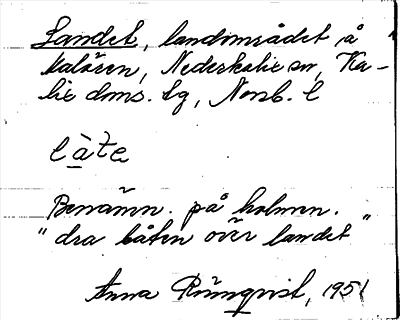 Landet, landområdet å
Kalören, Nederkalix sn, Ka-
lix dms. tg, Norrb. l
l à t e
Benämn. på holmen.
"dra båten över landet"
Anna Rönnqvist, 1951